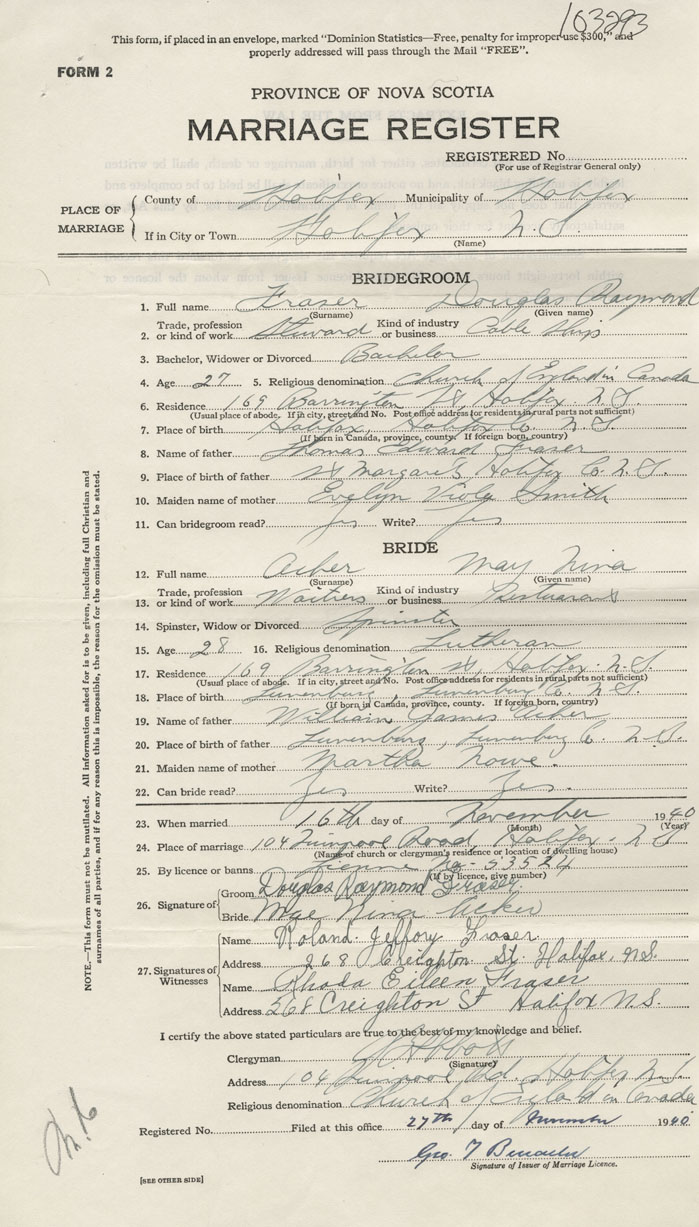 103293
This form, if placed in an envelope, marked "Dominion Statistics—Free, penalty for improper use $300," and
properly addressed will pass through the Mail "FREE".
FORM 2
PROVINCE OF NOVA SCOTIA
MARRIAGE REGISTER
REGISTERED No.
(For use of Registrar General only)
PLACE OF MARRIAGE
County of Halifax Municipality of Halifax
If in City or Town Halifax N.S.
(Name)
BRIDEGROOM
1. Full name Fraser Douglas Raymond
(Surname) (Given name)
2. Trade, profession or kind of work Steward Kind of industry or business Cable Ship
3. Bachelor, Widower or Divorced Bachelor
4. Age 27 5. Religious denomination Church of England in Canada
6. Residence 169 Barrington St, Halifax. N.S.
(Usual place of abode. If in city, street and No. Post office address for residents in rural parts not sufficient)
7. Place of birth Halifax, Halifax Co. N.S.
(If born in Canada, province, county. If foreign born, country)
8. Name of father Thomas Edward Fraser
9. Place of birth of father St Margarets, Halifax Co. N.S.
10. Maiden name of mother Evelyn Smith
11. Can bridegroom read? Yes Write? Yes
BRIDE
12. Full name Acker May Nina
(Surname) (Given name)
13. Trade, profession or kind of work Waitress Kind of industry or business Restaurant
14. Spinster, Widow or Divorced Spinster
15. Age 28 16. Religious denomination Lutheran
17. Residence 169 Barrington St, Halifax. N.S.
(Usual place of abode. If in city, street and No. Post office address for residents in rural parts not sufficient)
18. Place of birth Lunenburg, Lunenburg Co. N.S.
(If born in Canada, province, county. If foreign born, country)
19. Name of father William James Acker
20. Place of birth of father Lunenburg, Lunenburg Co. N.S.
21. Maiden name of mother Martha Nowe.
22. Can bride read? Yes Write? Yes.
23. When married 16th day of November 1940
(Month) (Year)
24. Place of marriage 104 Quinpool Road, Halifax. N S
(Name of church or clergyman's residence or location of dwelling house)
25. By licence or banns License No - 53524
(If by licence, give number)
26. Signature of
Groom Douglas Raymond Fraser.
Bride Mae Nina Acker
27. Signatures of Witnesses
Name Roland Jeffory Fraser
Address 268 Creighton St. Halifax, N.S.
Name Rhoda Eileen Fraser
Address 268 Creighton St Halifax N.S.
I certify the above stated particulars are true to the best of my knowledge and belief.
Clergyman
(Signature)
Address 104 Quinpool Rd. Halifax N.S.
Religious denomination Church of England in Canada
Registered No. Filed at this office 27th day of November 1940.
Geo. T
Signature of Issuer of Marriage Licence.
[SEE OTHER SIDE]
NOTE.—This form must not be mutilated. All information asked for is to be given, including full Christian and
surnames of all parties, and if for any reason this is impossible, the reason for the omission must be stated.